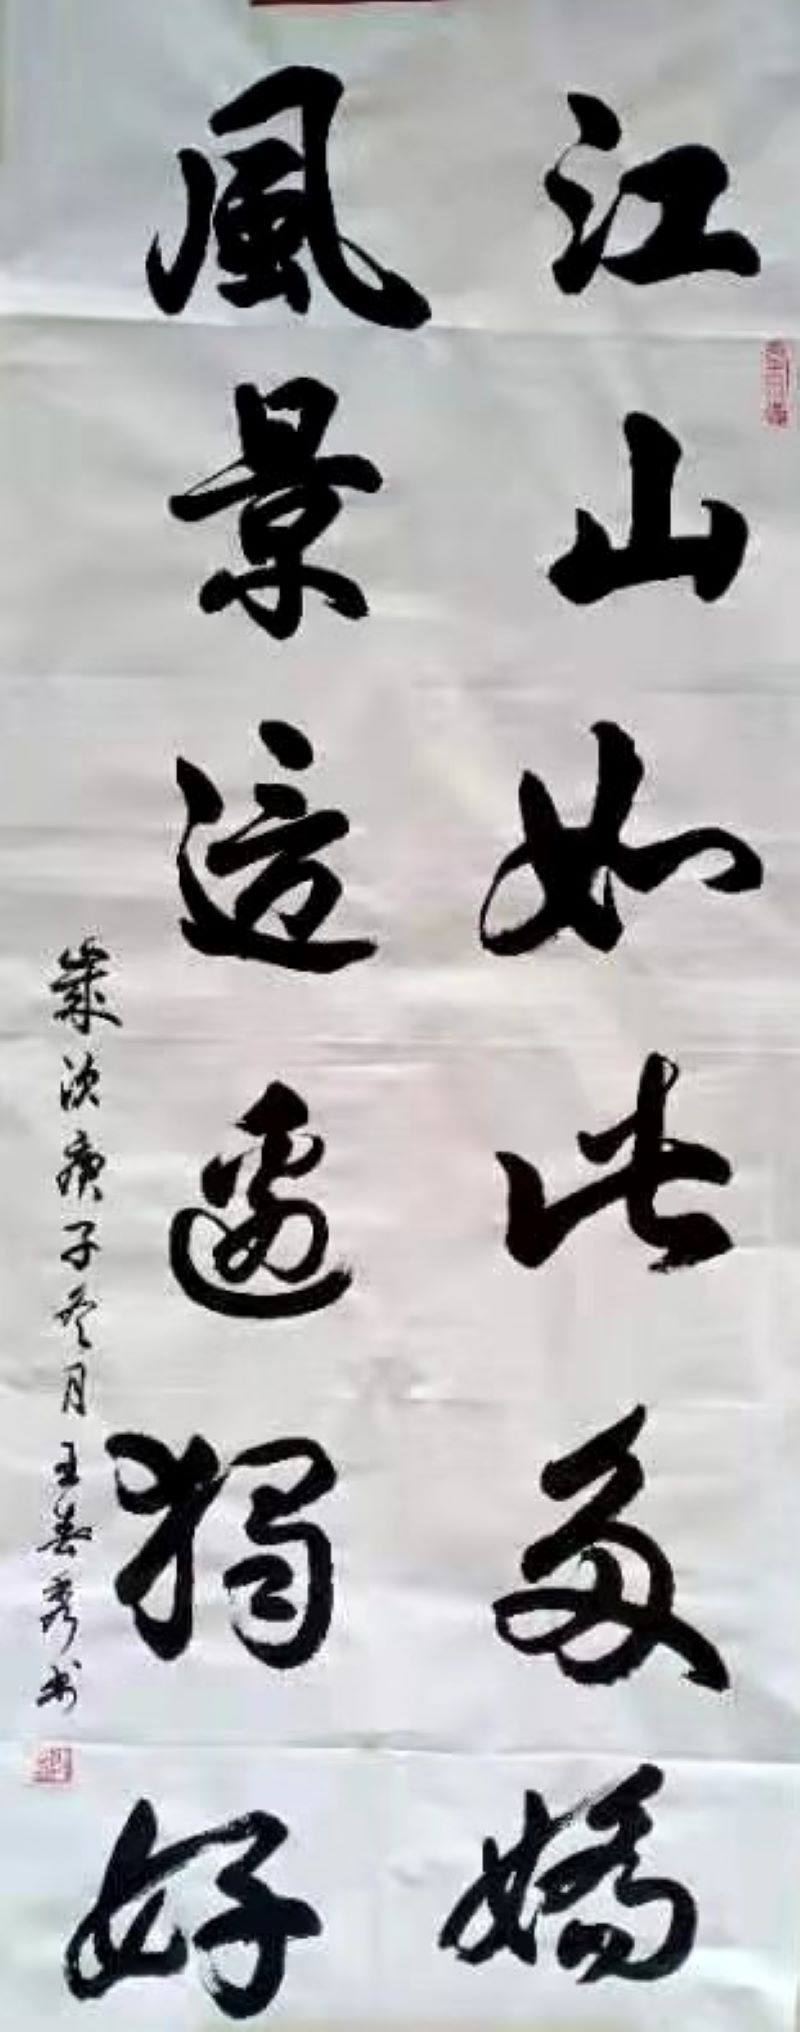 江山如此多嬌
風景這邊獨好
歲次庚子冬月王善秀书